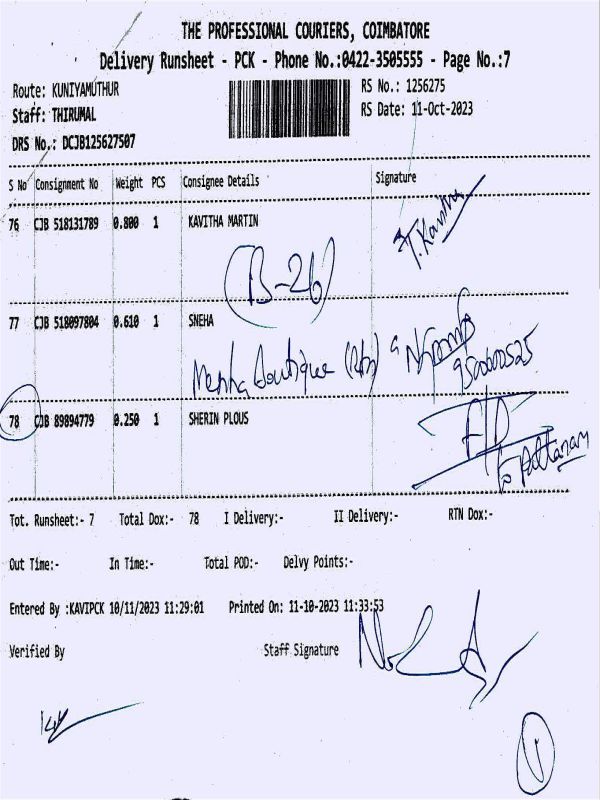 THE PROFESSIONAL COURIERS, COIMBATORE
Delivery Runsheet - PCK - Phone No.:0422-3505555 - Page No.:7
Route: KUNIYAMUTHUR RS No.: 1256275
Staff: THIRUMAL RS Date: 11-Oct-2023
DRS No.: DCJB125627507
S No Consignment No Weight PCS Consignee Details Signature
76 CJB 518131789 0.800 1 KAVITHA MARTIN T. Kavitha
(B-26)
77 CJB 518097804 0.610 1 SNEHA
Boutique
78 CJB 89894779 0.250 1 SHERIN PLOUS
to Pattanam
Tot. Runsheet:- 7 Total Dox:- 78 I Delivery:- II Delivery:- RTN Dox:-
Out Time:- In Time:- Total POD:- Delvy Points:-
Entered By :KAVIPCK 10/11/2023 11:29:01 Printed On: 11-10-2023 11:33:53
Verified By Staff Signature